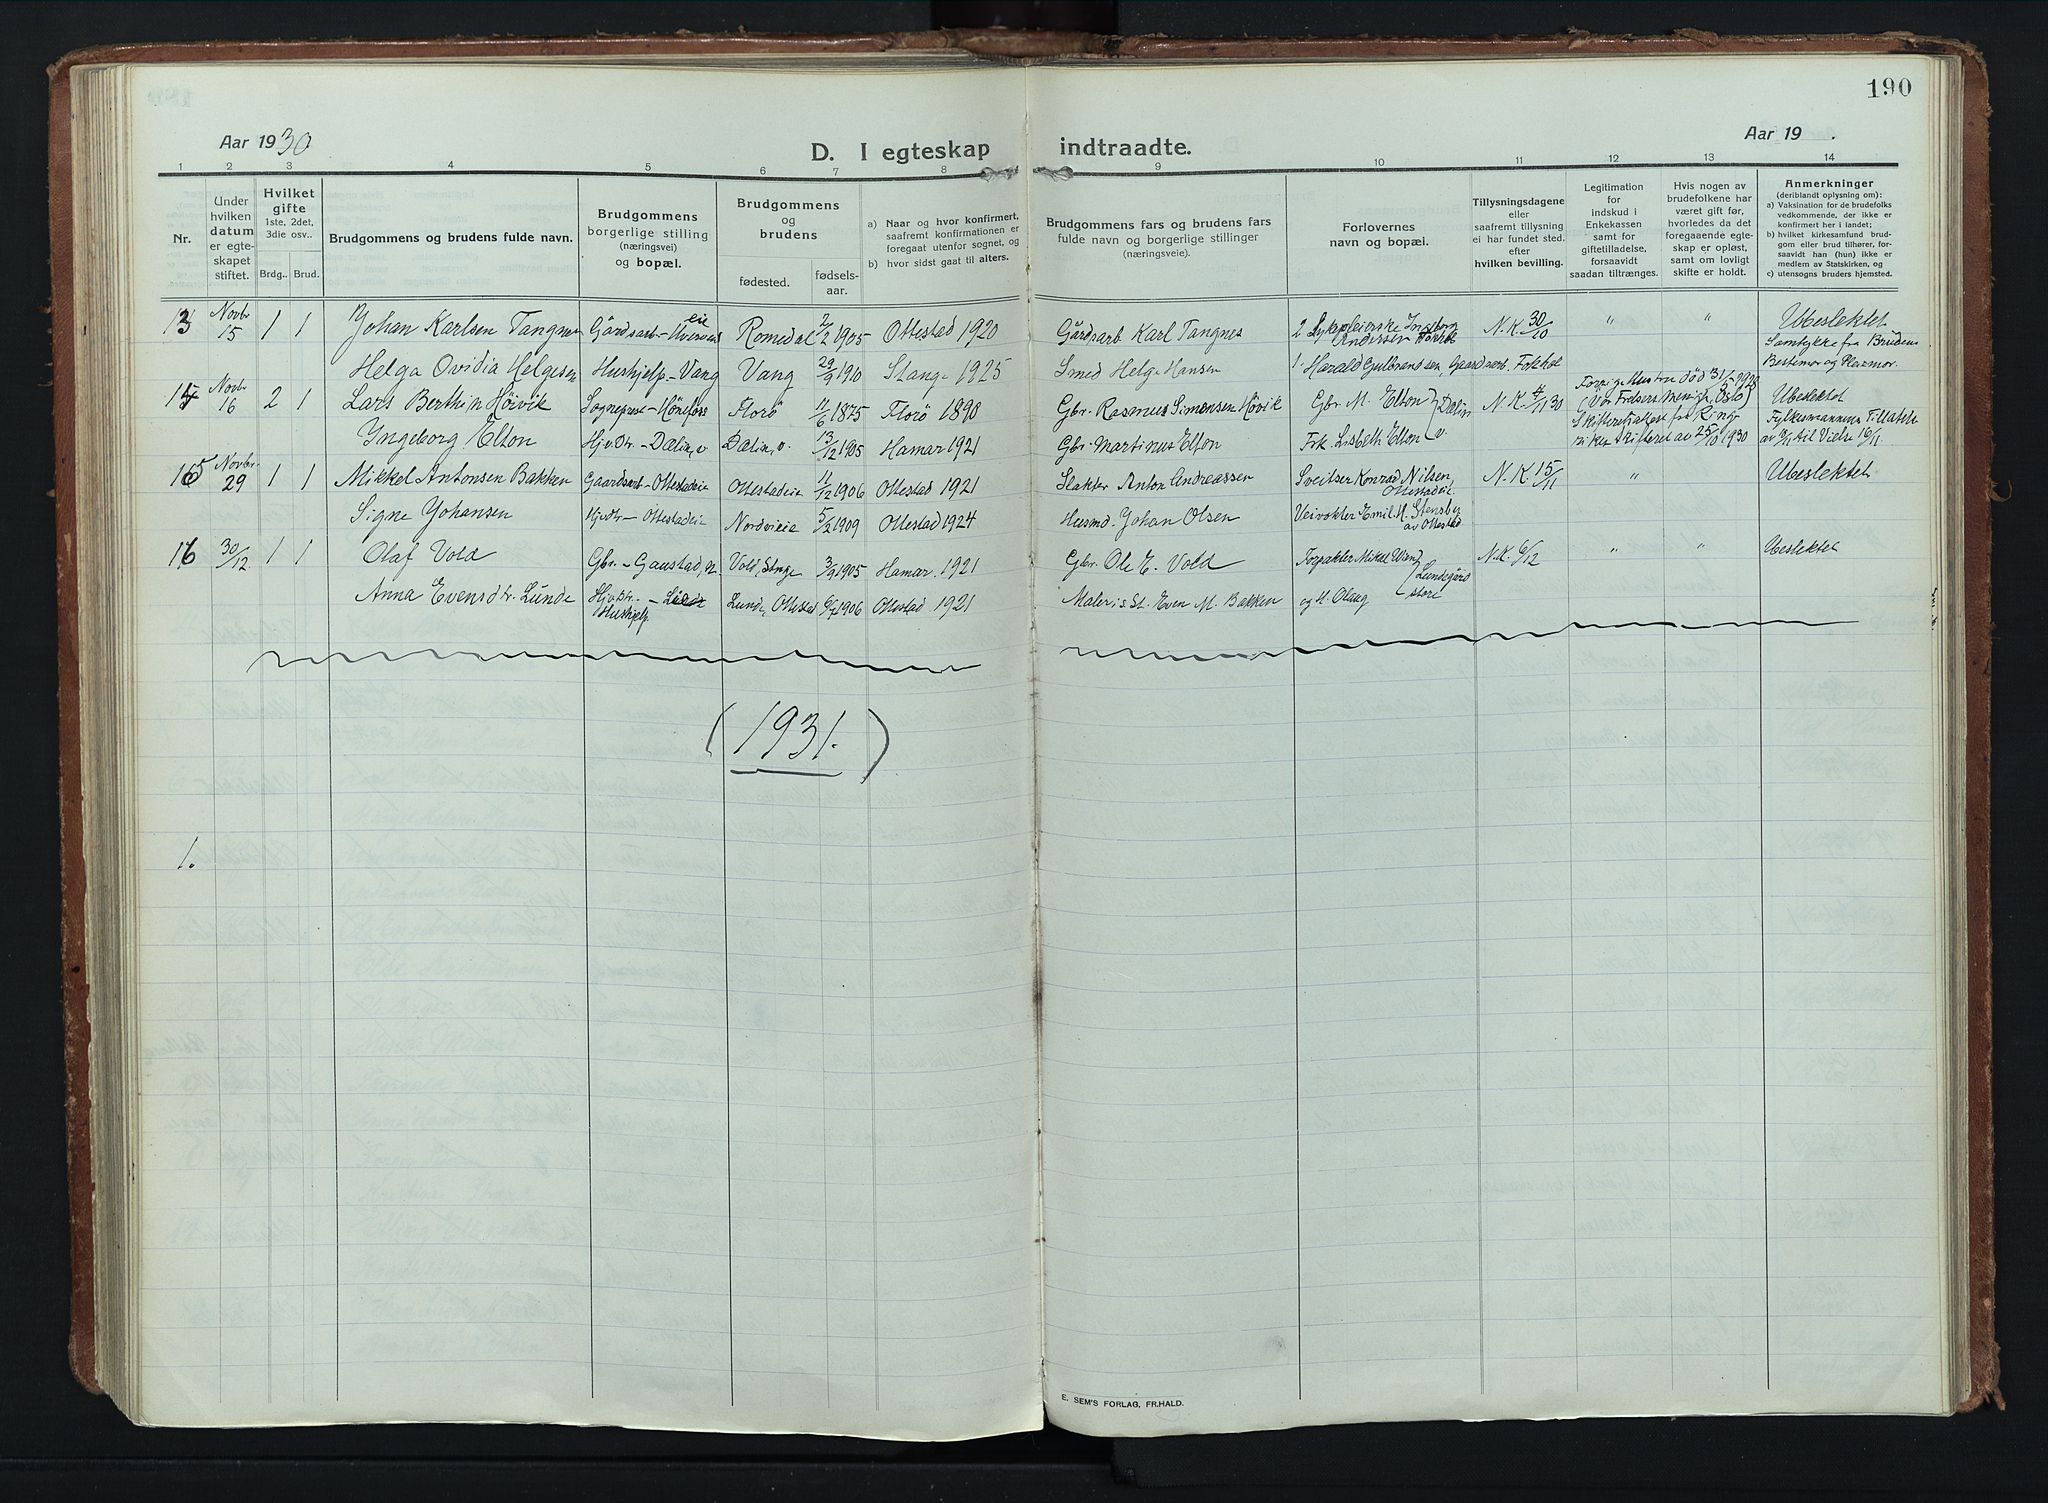 190
Aar 1930
Aar 19 .
D. I egteskap indtraadte.
1 2 3 4 5 6 7 8 9 10 11 12 13 14
Nr.
Under hvilken datum er egteskapet stiftet.
Hvilket gifte 1ste, 2det, 3die osv..
Brdg.. Brud.
Brudgommens og brudens fulde navn.
Brudgommens borgerlige stilling (næringsvei) og bopæl.
Brudgommens og brudens
fødested. fødsels-aar.
a) Naar og hvor konfirmert, saafremt konfirmationen er foregaat utenfor sognet, og
b) hvor sidst gaat til alters.
Brudgommens fars og brudens fars fulde navn og borgerlige stillinger (næringsveie).
Forlovernes navn og bopæl.
Tillysningsdagene eller saafremt tillysning ei har fundet sted. efter hvilken bevilling.
Legitimation for indskud i Enkekassen samt for giftetilladelse, forsaavidt saadan tiltrænges.
Hvis nogen av brudefolkene har været gift før, hvorledes da det foregaaende egteskap er opløst, samt om lovligt skifte er holdt.
Anmerkninger (deriblandt oplysning om):
a) Vaksination for de brudefolks vedkommende, der ikke er konfirmert her i landet;
b) hvilket kirkesamfund brudgom eller brud tilhører, forsaavidt han (hun) ikke er medlem av Statskirken, og
c) utensogns bruders hjemsted.
13 Novbr 15 1 1 Johan Karlsen Tangnes Gårdsarb - Romedal 2/2 1905 Ottestad 1920 Gårdsarb Karl Tangnes 2 Sykepleierske Ingeborg Andersen N.K. 30/10 " " Ubeslektet
Helga Ovidia Helgesen Hushjelp - Vang Vang 29/9 1910 Stange 1925 Smed Helge Hansen 1. Harald Gulbrandsen Gaardsarb. Samtykke fra Brudens Bestemor og Pleiemor.
14 Novbr 16 2 1 Lars Berthin Hövik Sogneprest - Hönefoss Florö 11/6 1875 Florö 1890 Gbr. Rasmus Simonsen Hövik Gbr M. Elton } Dælin v N.K. 4/11 30 Forrige Hustru död 31/5 1928 (Vor Frelsers Menigh, Oslo) Ubeslektet
Ingeborg Elton Hjv.Dtr. - Dælin, v Dælin, v. 13/12 1905 Hamar 1921 Gbr Martinus Elton Frk. Lisbeth Elton Skifteattest fra Ringerikes skifteret av 25/10 1930 Fylkesmannens Tillatelse av til Vielse 16/11
15 Novbr. 29 1 1 Mikkel Antonsen Bakken Gaardsarb - Ottestadeie Ottestadeie 11/12 1906 Ottestad 1921 Slakter Anton Andreassen Sveitser Konrad Nilsen, Ottestadeie N.K. 15/11 " Ubeslektet
Signe Johansen Hjv.dtr - Ottestadeie Nordvieie 5/2 1909 Ottestad 1924 Husmd. Johan Olsen Veivokter Emil H. Stensby av Ottestad
16 30/12 1 1 Olaf Vold Gbr. - Gaustad, n. Vold, Stange 3/9 1905 Hamar. 1921 Gbr. Ole E. Vold Forpakter Mikkel Wiand } Lundsgård store N.K. 6/12 " " Ubeslektet
Anna Evensdtr. Lunde Hjv.Dtr. - Hushjelp. Lunde, Ottestad 6/7 1906 Ottestad 1921 Malermst. Even M. Bakken og H. Olaug
(1931.)
1.
E. SEM'S FORLAG, FR.HALD.